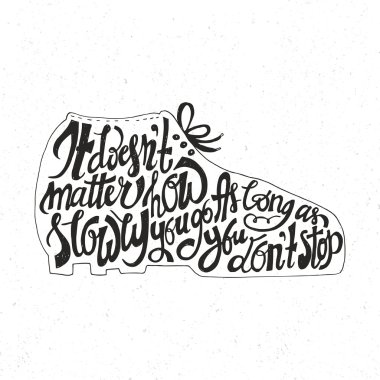 It doesn't
matter how
slowly you go
As long as
you don't stop